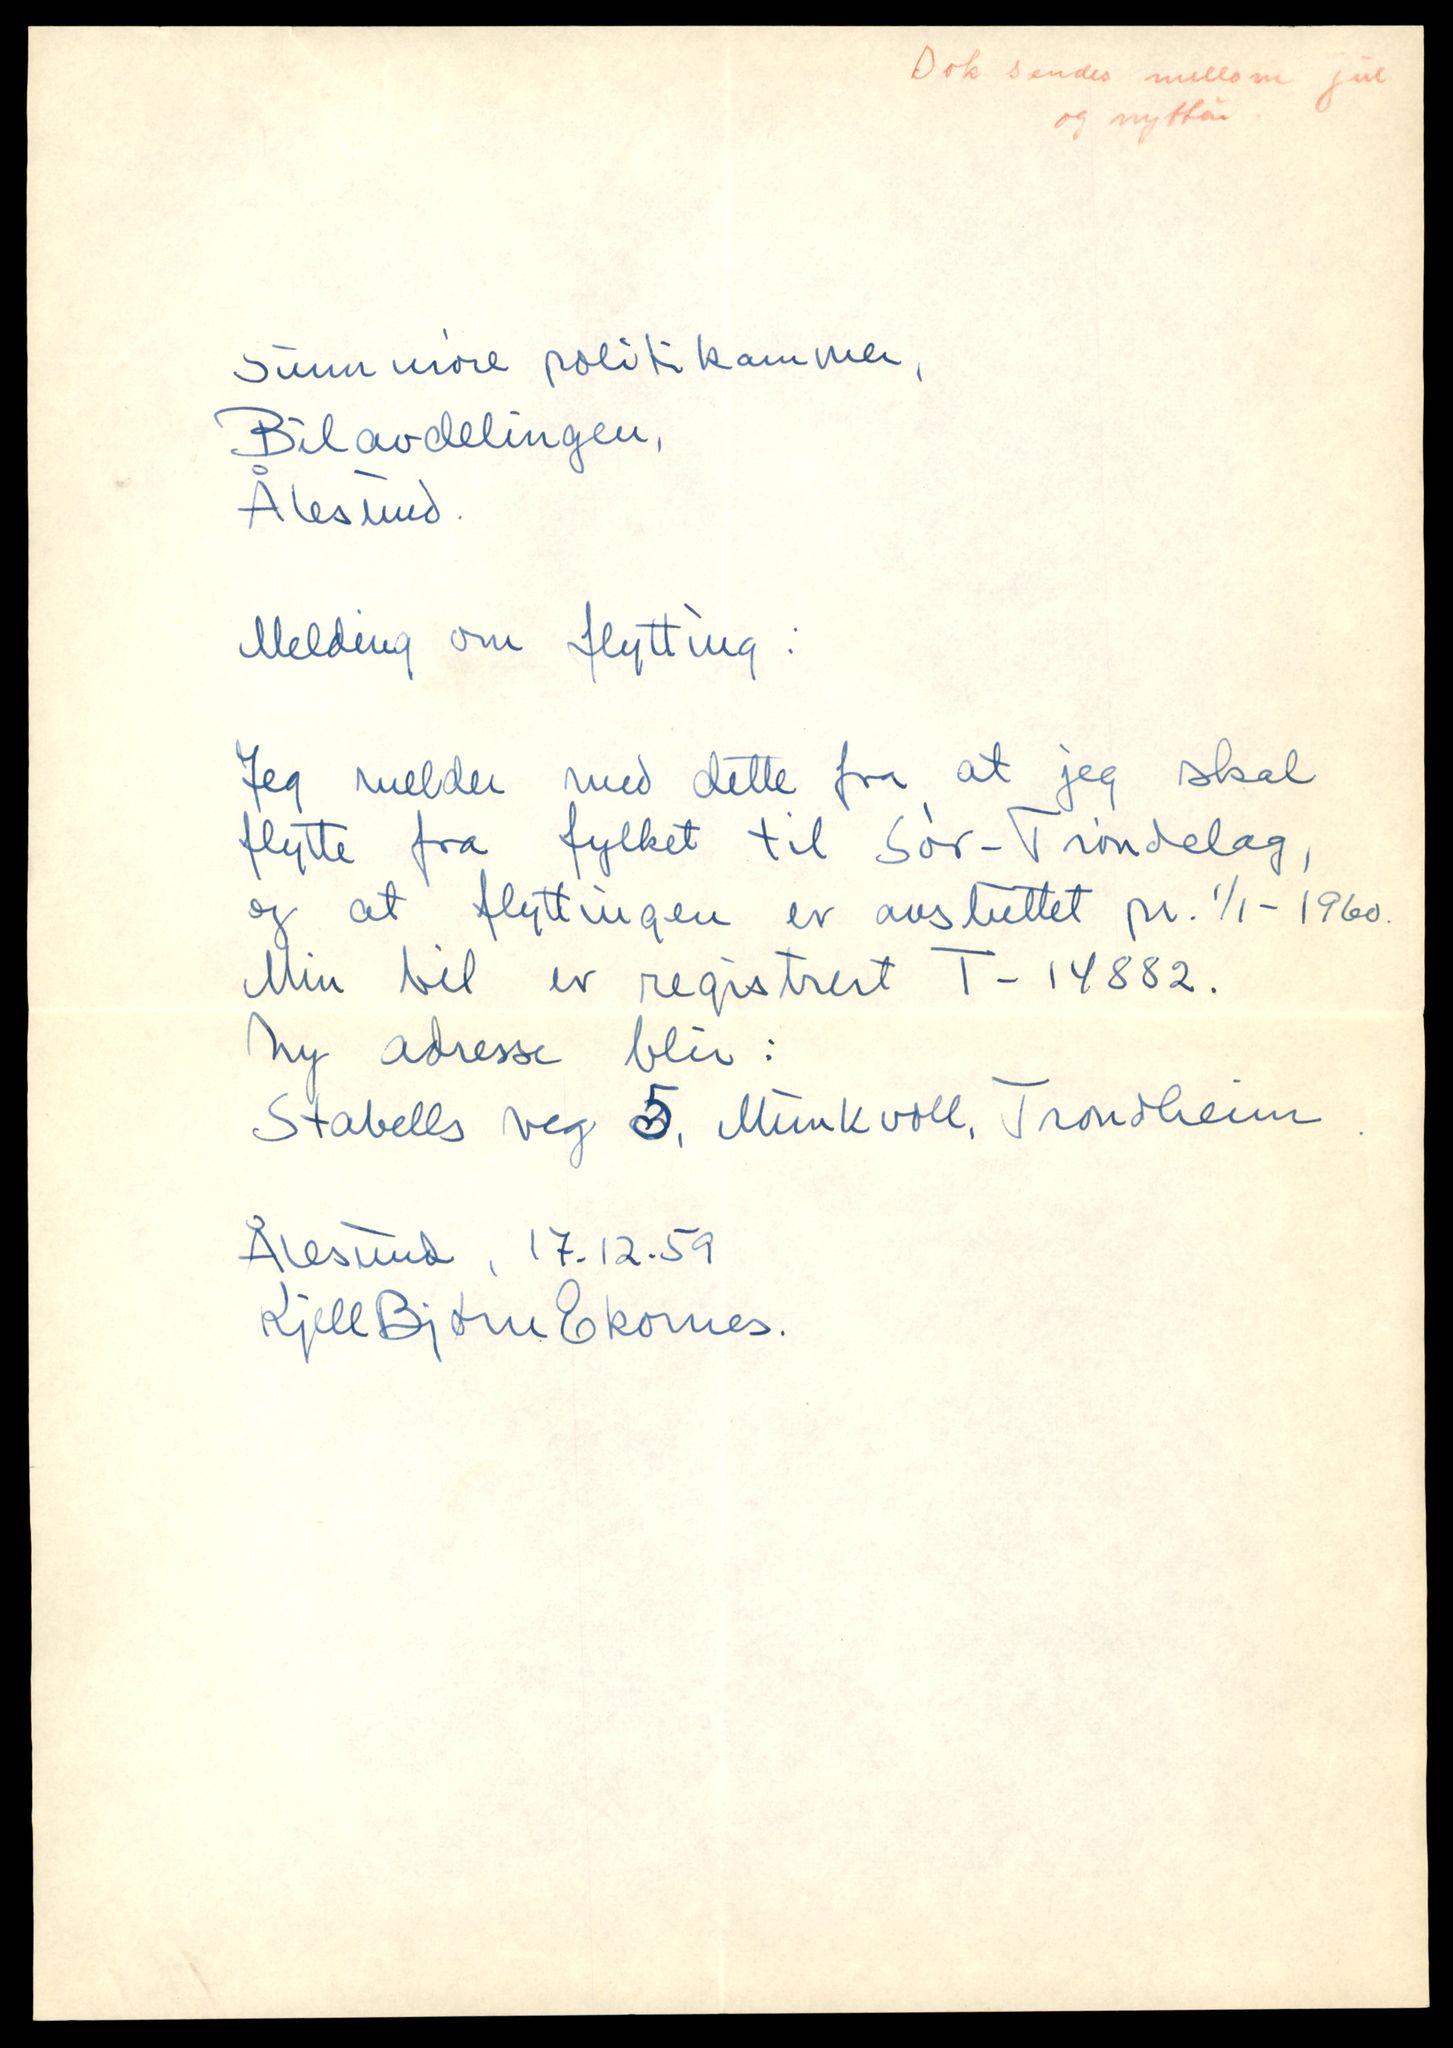 Dok sendes mellom jul
og nyttår.
Sunnmøre politikammer,
Bilavdelingen,
Ålesund.
Melding om flytting:
Jeg melder med dette fra, at jeg skal
flytte fra fylket til Sør-Trøndelag,
og at flyttingen er avsluttet pr. 1/1-1960.
Min bil er registrert T-14882.
Ny adresse blir:
Stabells veg 5, Munkvoll, Trondheim.
Ålesund, 17.12.59
Kjell Bjørn Ekornes.